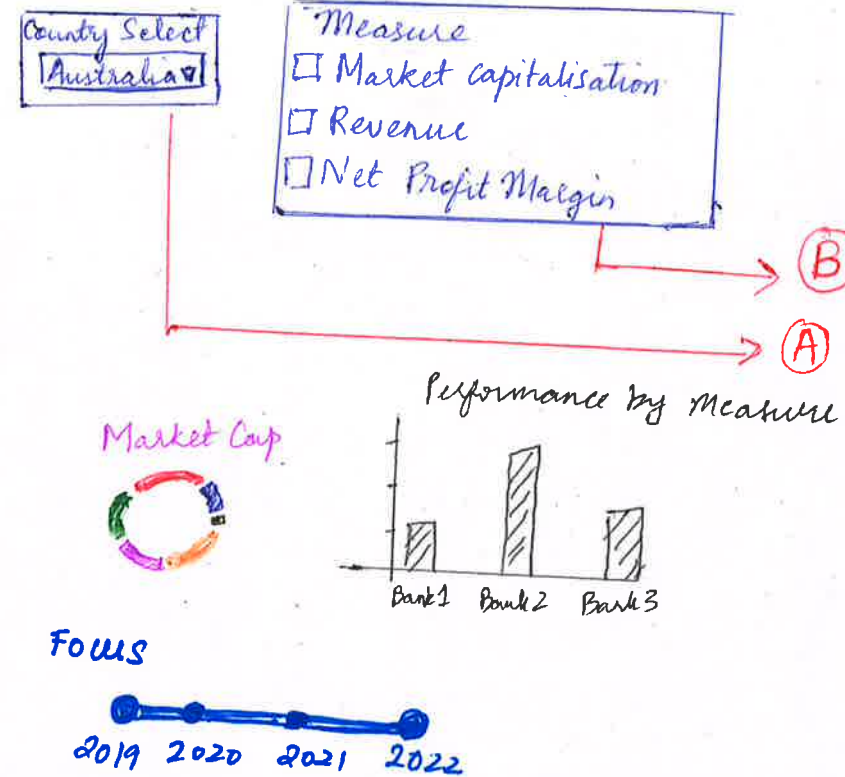 Country Select
Australia
Measure
Market capitalisation
Revenue
Net Profit Margin
B
A
Performance by Measure
Market Cap
Bank1 Bank2 Bank3
Focus
2019 2020 2021 2022